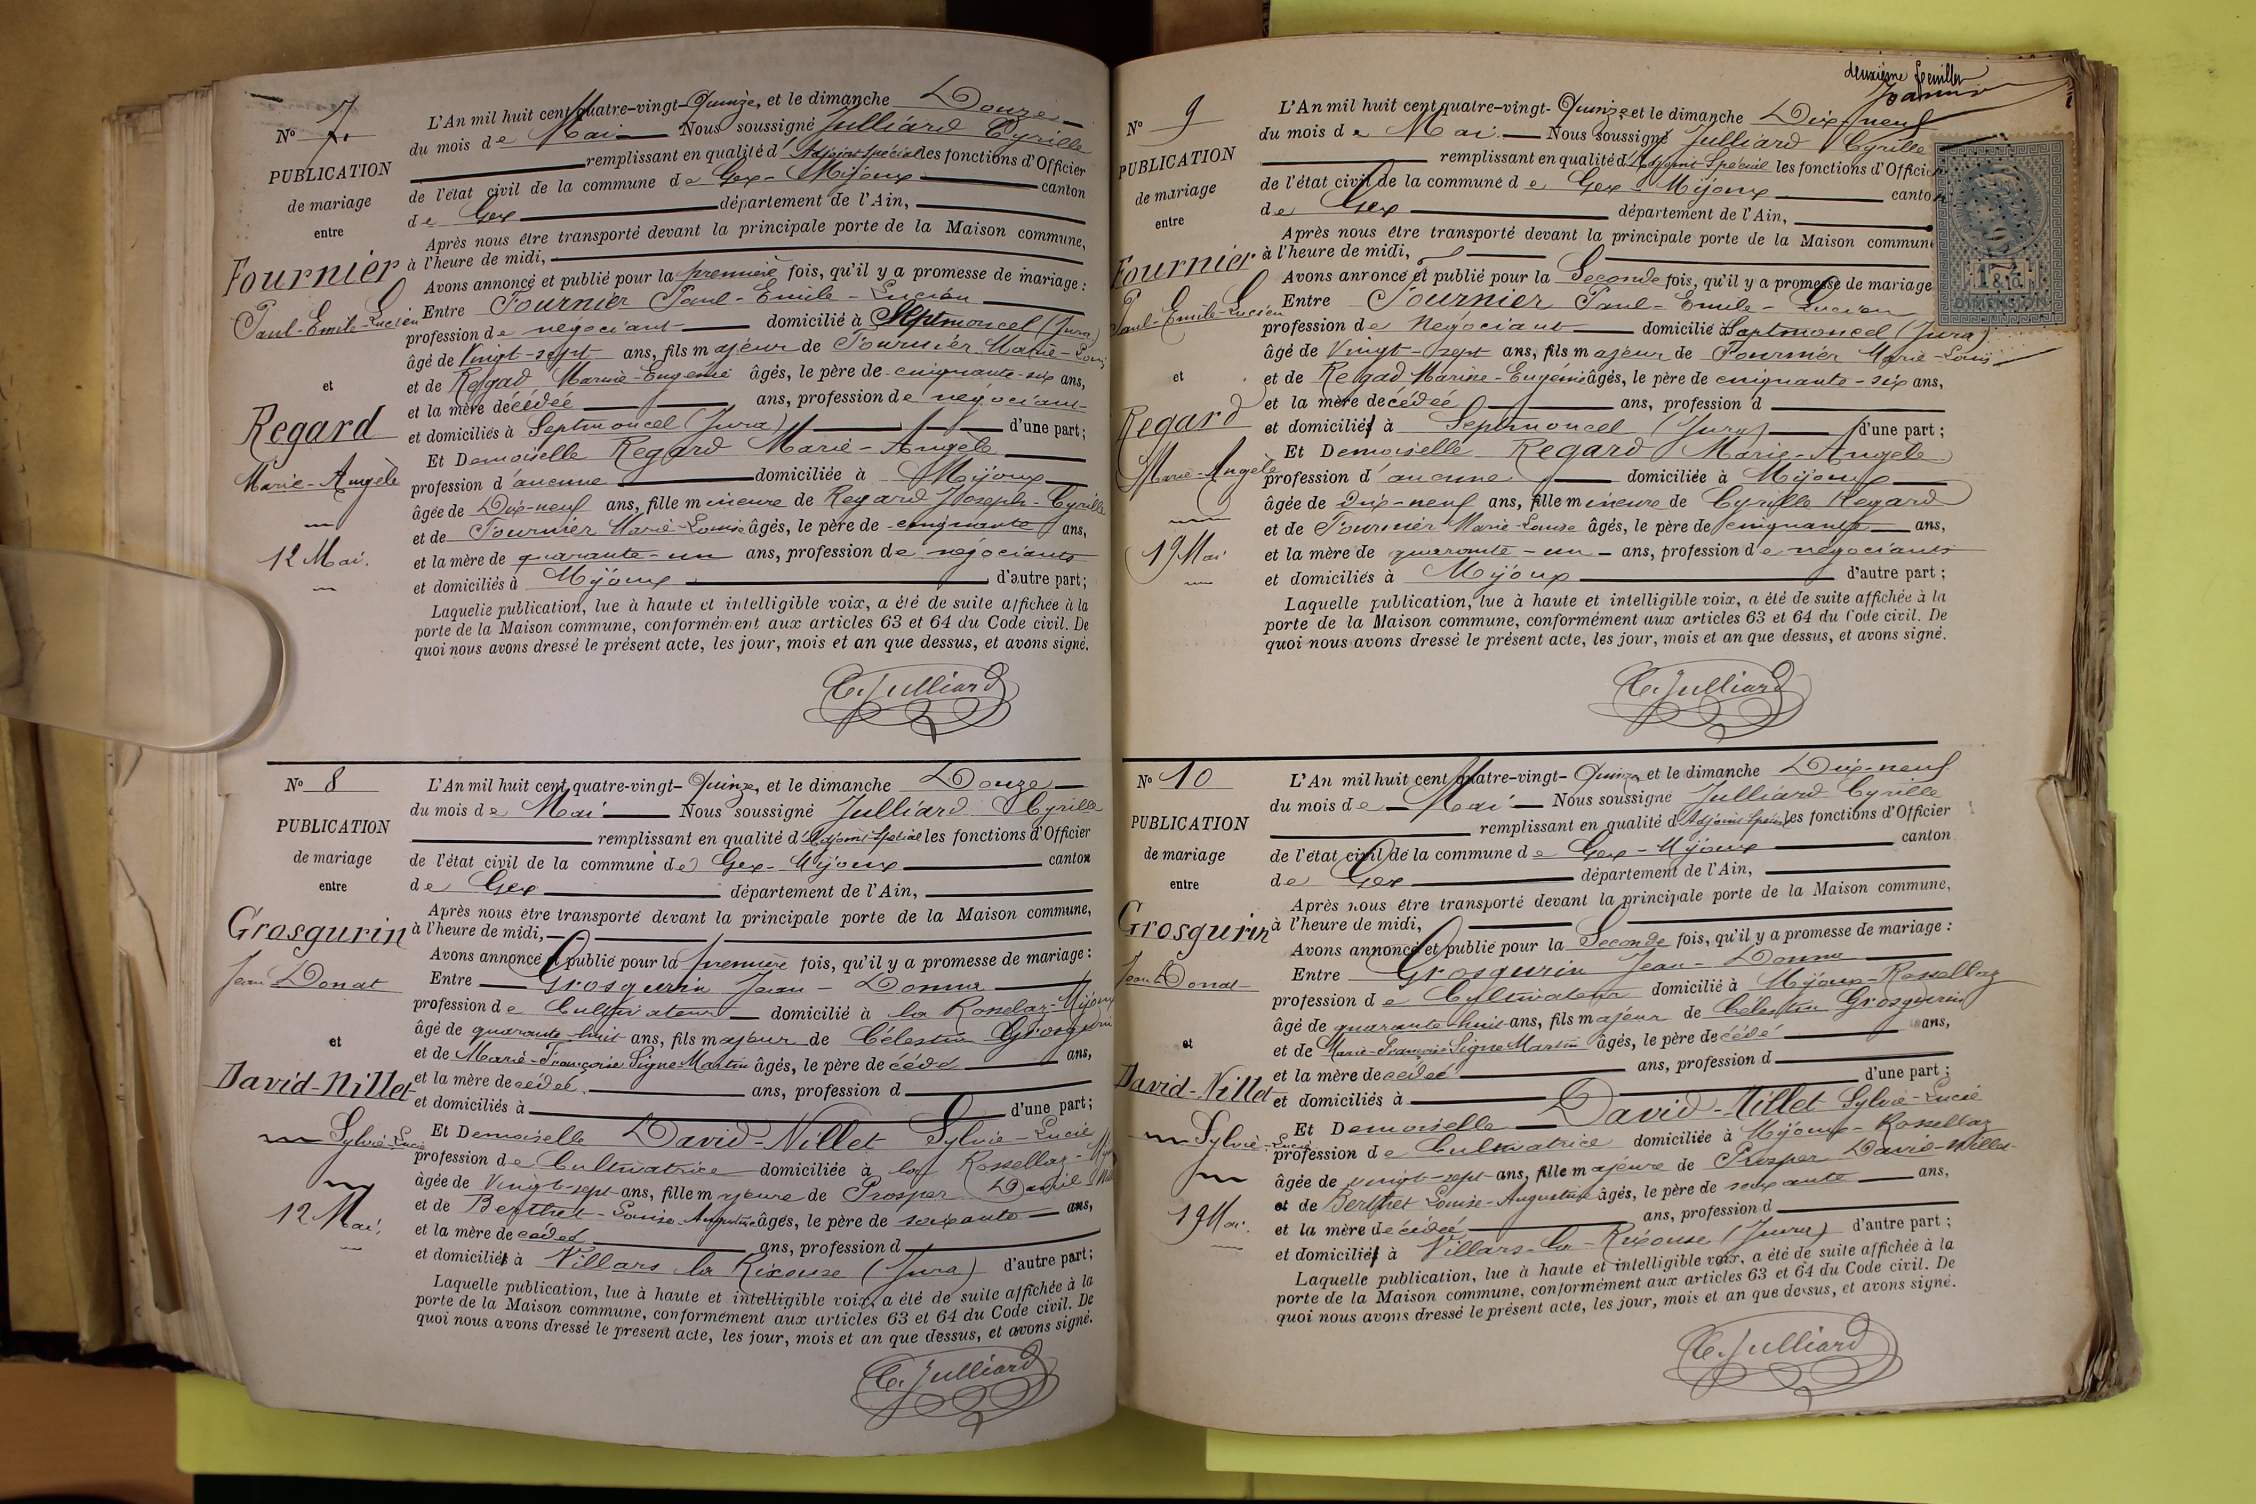 N° 7.
PUBLICATION
de mariage
entre
Fournier
Paul-Emile-Lucien
et
Regard
Marie-Angèle
12 Mai.
L'An mil huit cent quatre-vingt-Quinze, et le dimanche Douze
du mois de Mai Nous soussigné Julliard Cyrille
remplissant en qualité d'Adjoint Spécial les fonctions d'Officier
de l'état civil de la commune de Gex-Mijoux canton
de Gex département de l'Ain,
Après nous être transporté devant la principale porte de la Maison commune,
à l'heure de midi,
Avons annoncé et publié pour la première fois, qu'il y a promesse de mariage :
Entre Fournier Paul-Emile-Lucien
profession de négociant domicilié à Septmoncel (Jura)
âgé de Vingt-sept ans, fils majeur de Fournier Marie-Louis
et de Regad Marie-Eugénie âgés, le père de cinquante-six ans,
et la mère décédée ans, profession de négociant
et domiciliés à Septmoncel (Jura) d'une part ;
Et Demoiselle Regard Marie-Angèle
profession d'aucune domiciliée à Mijoux
âgée de Dix-neuf ans, fille mineure de Regard Joseph-Cyrille
et de Fournier Marie-Louise âgés, le père de cinquante ans,
et la mère de quarante-un ans, profession de négociants
et domiciliés à Mijoux d'autre part ;
Laquelle publication, lue à haute et intelligible voix, a été de suite affichée à la
porte de la Maison commune, conformément aux articles 63 et 64 du Code civil. De
quoi nous avons dressé le présent acte, les jour, mois et an que dessus, et avons signé.
C. Julliard
N° 8
PUBLICATION
de mariage
entre
Grosgurin
Jean Donat
et
David-Nillet
Sylvie-Lucie
12 Mai.
L'An mil huit cent quatre-vingt-Quinze, et le dimanche Douze
du mois de Mai Nous soussigné Julliard Cyrille
remplissant en qualité d'Adjoint Spécial les fonctions d'Officier
de l'état civil de la commune de Gex-Mijoux canton
de Gex département de l'Ain,
Après nous être transporté devant la principale porte de la Maison commune,
à l'heure de midi,
Avons annoncé et publié pour la première fois, qu'il y a promesse de mariage :
Entre Grosgurin Jean-Donna
profession de Cultivateur domicilié à la Rosselaz-Mijoux
âgé de quarante-huit ans, fils majeur de Célestin Grosgurin
et de Marie-Françoise Signe Martin âgés, le père décédé ans,
et la mère decédée ans, profession d
et domiciliés à d'une part ;
Et Demoiselle David-Nillet Sylvie-Lucie
profession de Cultivatrice domiciliée à la Rossellaz-
âgée de vingt-sept ans, fille majeure de Prosper David
et de Berthet-Louise-Augustine âgés, le père de soixante ans,
et la mère decédée ans, profession d
et domiciliés à Villars la Rixouse (Jura) d'autre part ;
Laquelle publication, lue à haute et intelligible voix, a été de suite affichée à la
porte de la Maison commune, conformément aux articles 63 et 64 du Code civil. De
quoi nous avons dressé le présent acte, les jour, mois et an que dessus, et avons signé.
C. Julliard
deuxième feuillet
N° 9
PUBLICATION
de mariage
entre
Fournier
Paul-Emile-Lucien
et
Regard
Marie-Angèle
19 Mai
DIMENSION
L'An mil huit cent quatre-vingt-Quinze et le dimanche Dix-neuf
du mois de Mai Nous soussigné Julliard Cyrille
remplissant en qualité d'Adjoint Spécial les fonctions d'Officier
de l'état civil de la commune de Gex-Mijoux canton
de Gex département de l'Ain,
Après nous être transporté devant la principale porte de la Maison commune
à l'heure de midi,
Avons annoncé et publié pour la Seconde fois, qu'il y a promesse de mariage
Entre Fournier Paul-Emile-Lucien
profession de Négociant domicilié à Septmoncel (Jura)
âgé de Vingt-sept ans, fils majeur de Fournier Marie-Louis
et de Regad Marie-Eugénie âgés, le père de cinquante-six ans,
et la mère decédée ans, profession d
et domiciliés à Septmoncel (Jura) d'une part ;
Et Demoiselle Regard Marie-Angèle
profession d'aucune domiciliée à Mijoux
âgée de Dix-neuf ans, fille mineure de Cyrille Regard
et de Fournier Marie-Louise âgés, le père de cinquante ans,
et la mère de quarante-un ans, profession de négociants
et domiciliés à Mijoux d'autre part ;
Laquelle publication, lue à haute et intelligible voix, a été de suite affichée à la
porte de la Maison commune, conformément aux articles 63 et 64 du Code civil. De
quoi nous avons dressé le présent acte, les jour, mois et an que dessus, et avons signé.
C. Julliard
N° 10
PUBLICATION
de mariage
entre
Grosgurin
Jean Donat
et
David-Nillet
Sylvie-Lucie
19 Mai.
L'An mil huit cent quatre-vingt-Quinze, et le dimanche Dix-neuf
du mois de Mai Nous soussigné Julliard Cyrille
remplissant en qualité d'Adjoint Spécial les fonctions d'Officier
de l'état civil de la commune de Gex-Mijoux canton
de Gex département de l'Ain,
Après nous être transporté devant la principale porte de la Maison commune,
à l'heure de midi,
Avons annoncé et publié pour la Seconde fois, qu'il y a promesse de mariage :
Entre Grosgurin Jean-Donna
profession de Cultivateur domicilié à Mijoux Rossellaz
âgé de quarante-huit ans, fils majeur de Célestin Grosgurin
et de Marie-Françoise Signe Martin âgés, le père decédé ans,
et la mère decédée ans, profession d
et domiciliés à d'une part ;
Et Demoiselle David-Nillet Sylvie-Lucie
profession de Cultivatrice domiciliée à Mijoux-Rossellaz
âgée de vingt-sept ans, fille majeure de Prosper David-Nillet
et de Berthet Louise-Augustine âgés, le père de soixante ans,
et la mère décédée ans, profession d
et domiciliés à Villars-la-Rixouse (Jura) d'autre part ;
Laquelle publication, lue à haute et intelligible voix, a été de suite affichée à la
porte de la Maison commune, conformément aux articles 63 et 64 du Code civil. De
quoi nous avons dressé le présent acte, les jour, mois et an que dessus, et avons signé.
C. Julliard